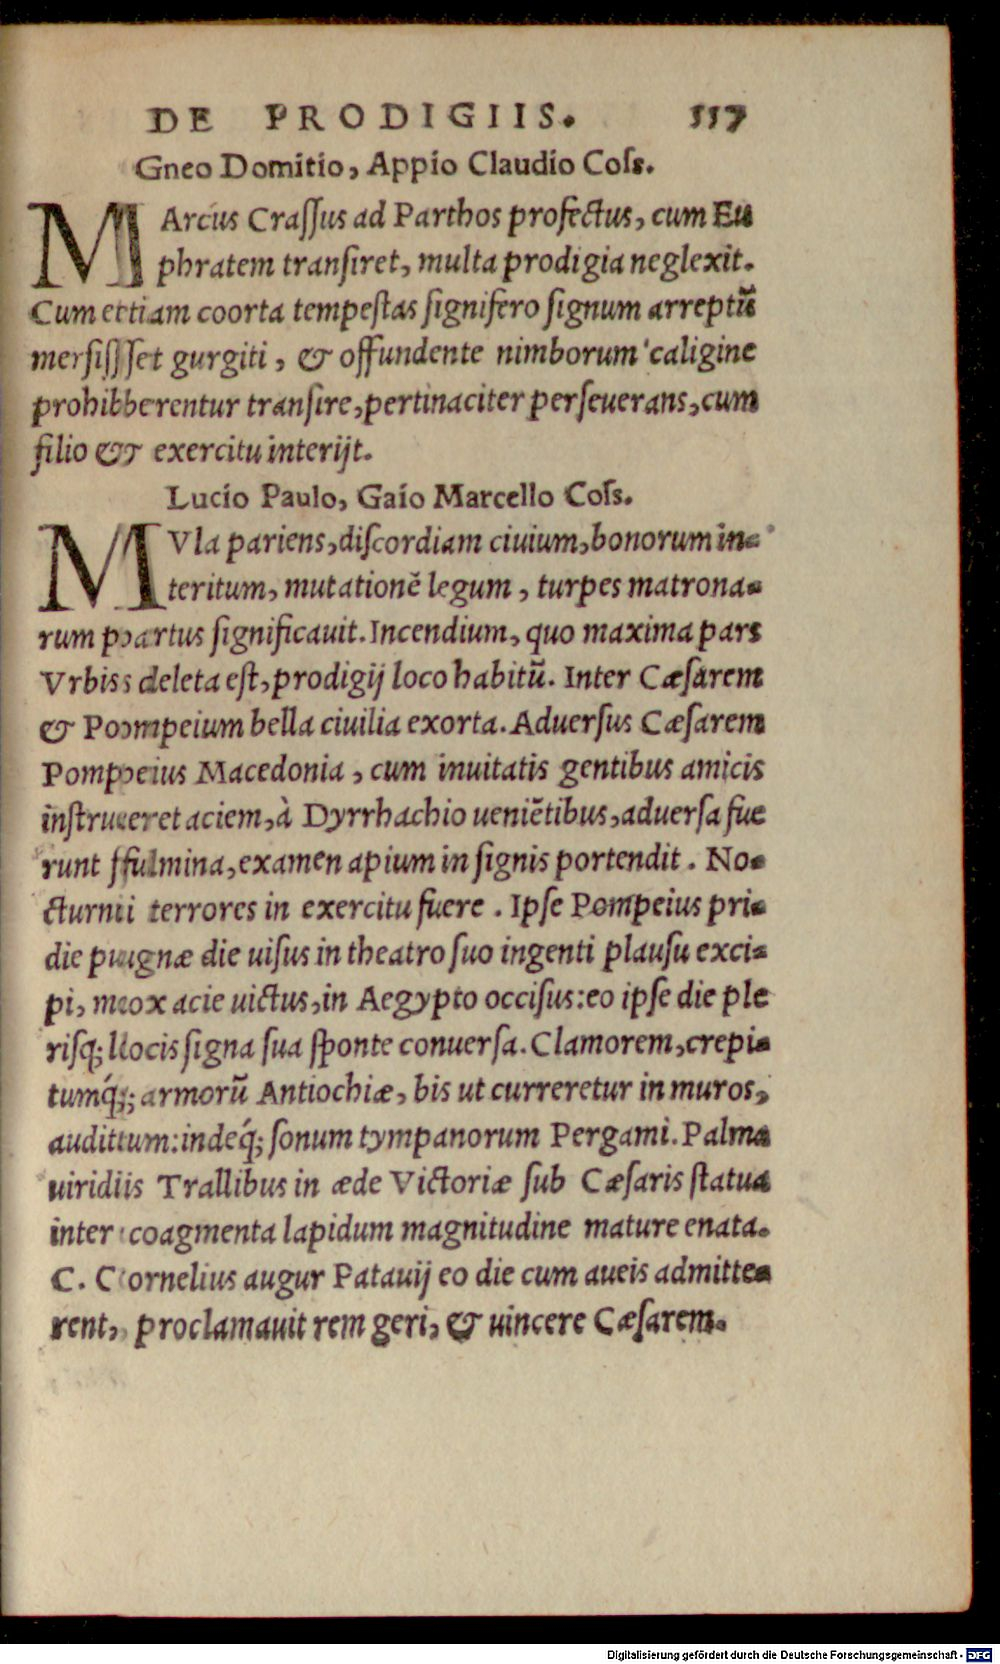 DE PRODIGIIS. 117
Gneo Domitio, Appio Claudio Coſs.
MArcus Craſſus ad Parthos profectus, cum Eu
phratem tranſiret, multa prodigia neglexit.
Cum etiam coorta tempeſtas ſignifero ſignum arreptū
merſiſſet gurgiti, & offundente nimborum caligine
prohiberentur tranſire, pertinaciter perſeuerans, cum
filio & exercitu interijt.
Lucio Paulo, Gaio Marcello Coſs.
MVla pariens, diſcordiam ciuium, bonorum in-
teritum, mutationē legum, turpes matrona-
rum partus ſignificauit. Incendium, quo maxima pars
Vrbis deleta eſt, prodigij loco habitū. Inter Cæſarem
& Pompeium bella ciuilia exorta. Aduerſus Cæſarem
Pompeius Macedonia, cum inuitatis gentibus amicis
inſtrueret aciem, à Dyrrhachio ueniētibus, aduerſa fue
runt fulmina, examen apium in ſignis portendit. No-
cturni terrores in exercitu fuere. Ipſe Pompeius pri-
die pugnæ die uiſus in theatro ſuo ingenti plauſu exci-
pi, mox acie uictus, in Aegypto occiſus: eo ipſe die ple
riſq; locis ſigna ſua ſponte conuerſa. Clamorem, crepi-
tumq́; armorū Antiochiæ, bis ut curreretur in muros,
auditum: indeq́; ſonum tympanorum Pergami. Palma
uiridis Trallibus in æde Victoriæ ſub Cæſaris ſtatua
inter coagmenta lapidum magnitudine mature enata.
C. Cornelius augur Patauij eo die cum aueis admitte-
rent, proclamauit rem geri, & uincere Cæſarem.
Digitalisierung gefördert durch die Deutsche Forschungsgemeinschaft - DFG